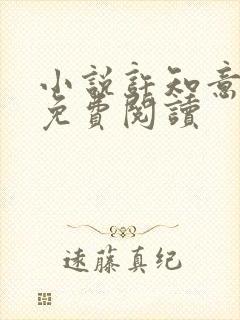 小説許知意
免費閱讀
遠藤真纪